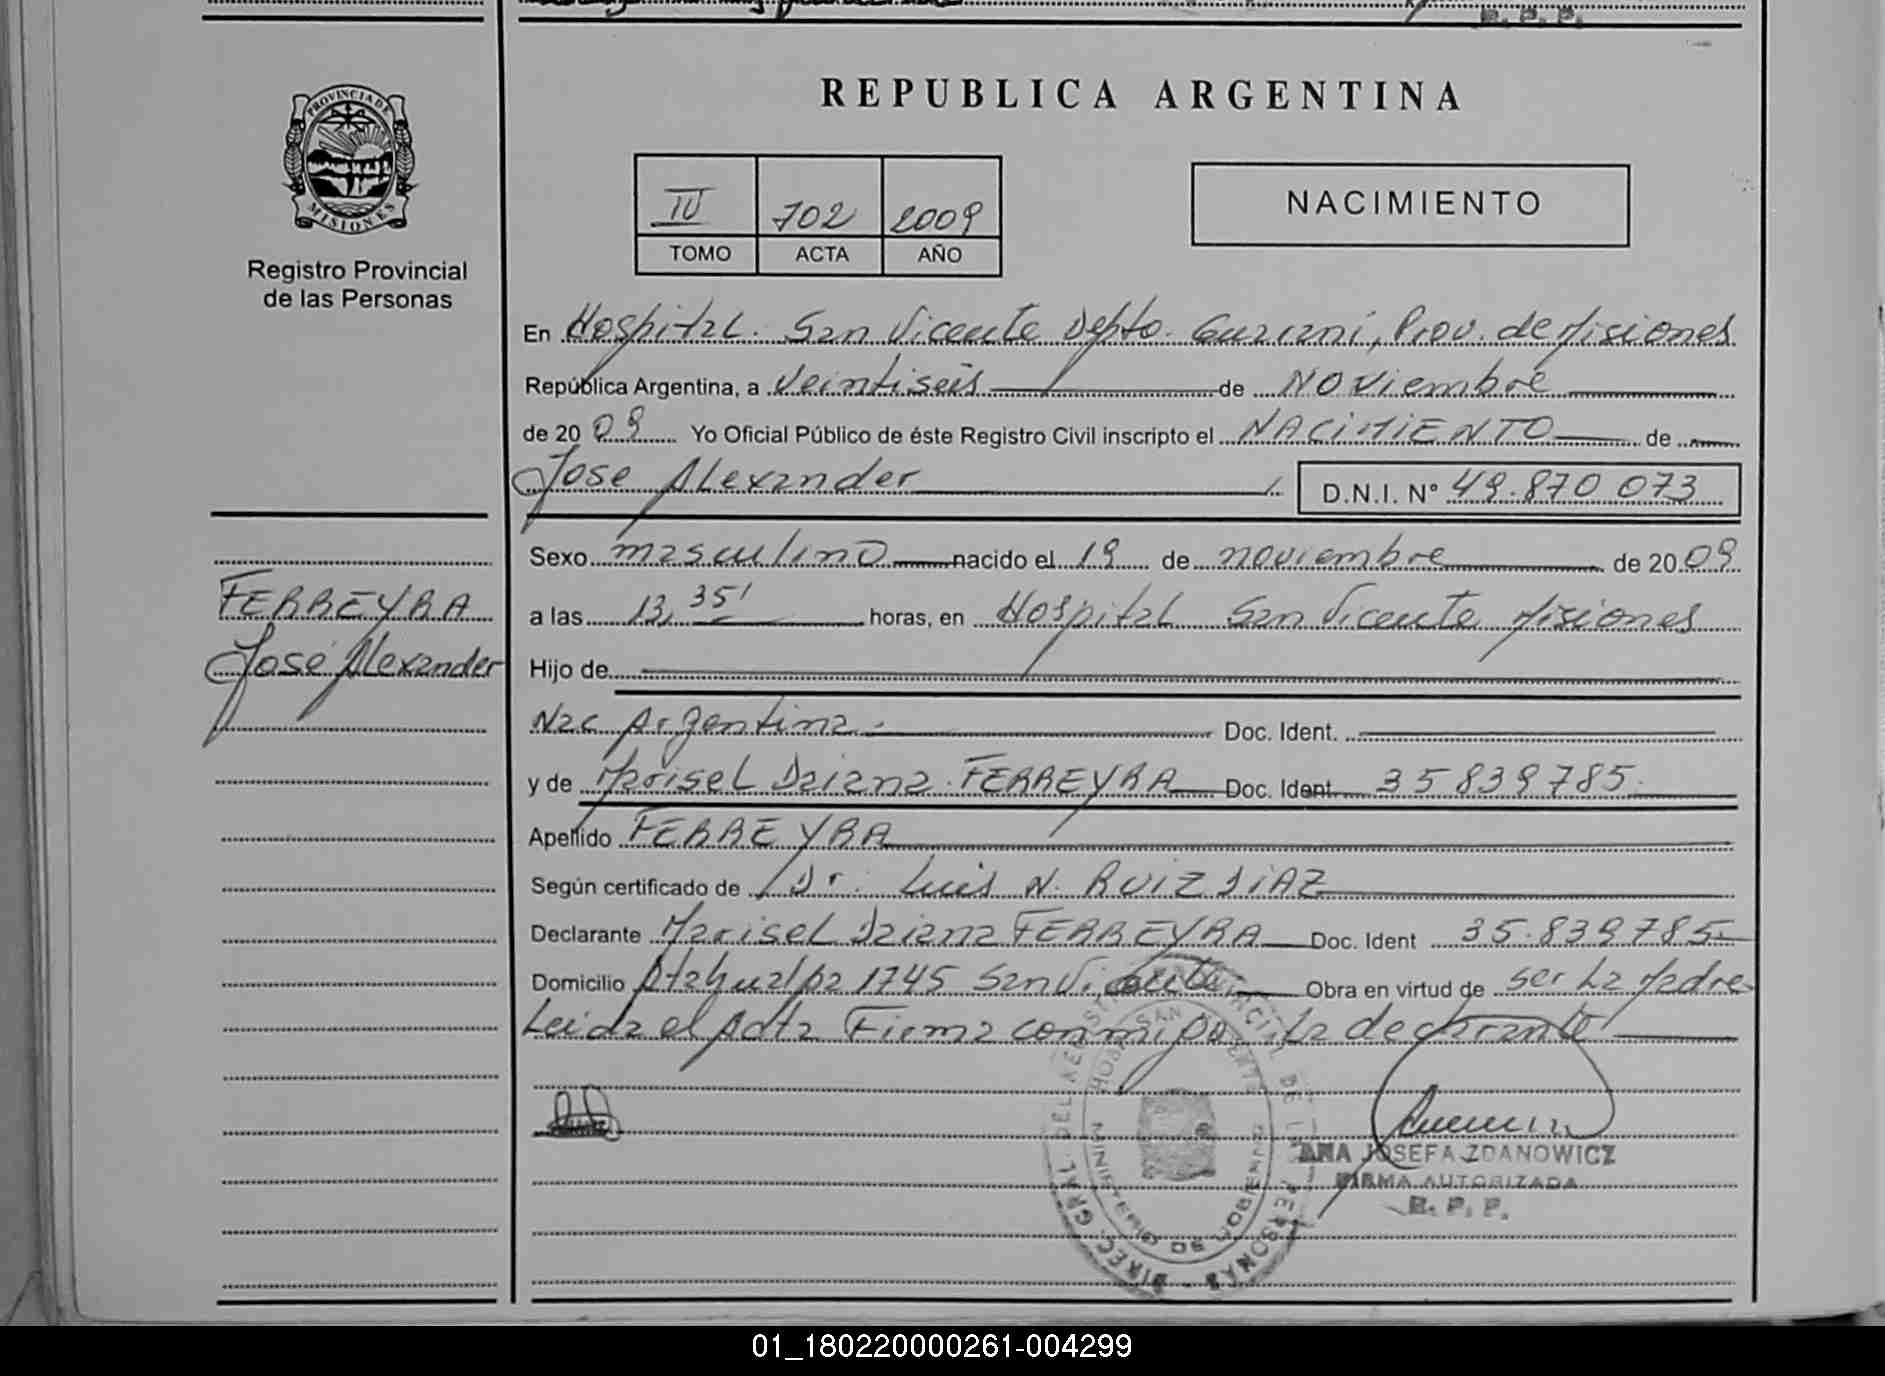 R. P. P.
PROVINCIA DE
MISIONES
Registro Provincial
de las Personas
REPUBLICA ARGENTINA
IV 702 2009
TOMO ACTA AÑO
NACIMIENTO
En Hospital San Vicente Depto. Guarani, Prov. de Misiones
República Argentina, a Veintiseis de Noviembre
de 2009 Yo Oficial Público de éste Registro Civil inscripto el NACIMIENTO de
Jose Alexander D.N.I. Nº 49.870 073
Sexo masculino nacido el 19 de noviembre de 2009
FERREYRA
José Alexander
a las 13,35' horas, en Hospital San Vicente Misiones
Hijo de
Nac Argentina.- Doc. Ident.
y de Marisel Daiana FERREYRA Doc. Ident. 35839785.
Apellido FERREYRA
Según certificado de Dr. Luis N. RUIZ DIAZ
Declarante Marisel Daiana FERREYRA Doc. Ident 35.839785-
Domicilio Atahualpa 1745 San Vicente Obra en virtud de ser La Madre
Leida el Acta Firma conmigo La declarante
DIREC. GRAL. DEL REGISTRO PROVINCIAL DE LAS PERSONAS
MINISTERIO DE GOBIERNO
HOSP. SAN VICENTE
ANA JOSEFA ZDANOWICZ
FIRMA AUTORIZADA
R. P. P.
01_180220000261-004299